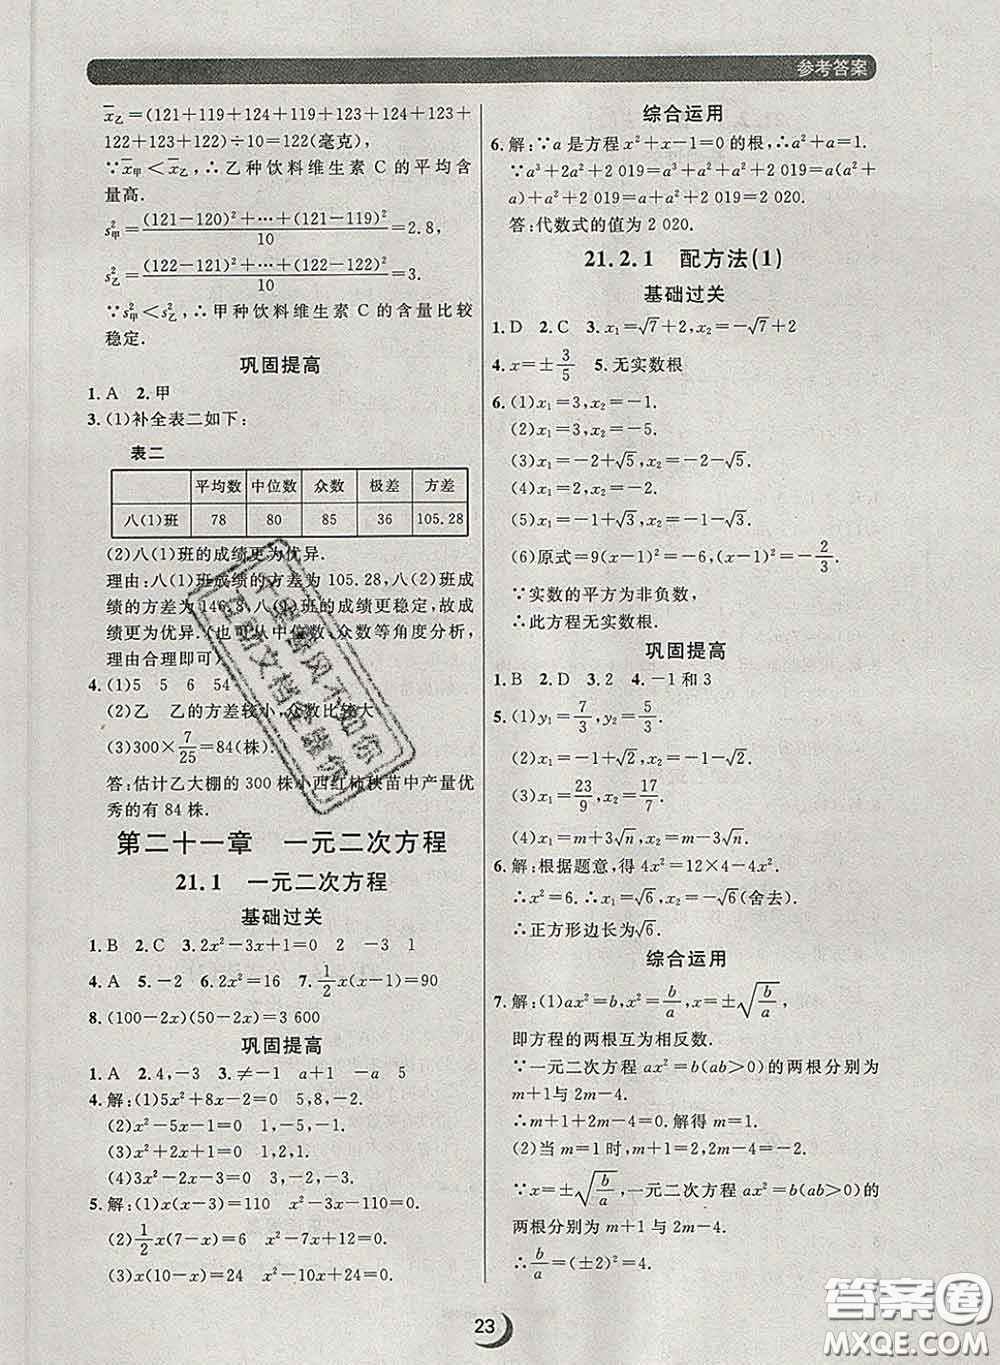 参考答案
x̄乙=(121+119+124+119+123+124+123+
122+123+122)÷10=122(毫克)
∵x̄甲<x̄乙,∴乙种饮料维生素 C 的平均含
量高.
s²甲=(121-120)²+…+(121-119)²/10=2.8,
s²乙=(121-122)²+…+(122-122)²/10=3.
∵s²甲<s²乙,∴甲种饮料维生素 C 的含量比较
稳定.
巩固提高
1. A 2. 甲
3. (1)补全表二如下:
表二
平均数 中位数 众数 极差 方差
八(1)班 78 80 85 36 105.28
(2)八(1)班的成绩更为优异.
理由:八(1)班成绩的方差为 105.28,八(2)班成
绩的方差为 146.3,八(1)班的成绩更稳定,故成
绩更为优异.(也可从中位数、众数等角度分析,
理由合理即可)
4. (1)5 5 6 54
(2)乙 乙的方差较小,众数比较大
(3)300×7/25=84(株).
答:估计乙大棚的 300 株小西红柿秧苗中产量优
秀的有 84 株.
第二十一章 一元二次方程
21.1 一元二次方程
基础过关
1. B 2. C 3. 2x²-3x+1=0 2 -3 1
4. A 5. -2 6. 2x²=16 7. 1/2x(x-1)=90
8. (100-2x)(50-2x)=3 600
巩固提高
1. A 2. 4,-3 3. ≠-1 a+1 -a 5
4. 解:(1)5x²+8x-2=0 5,8,-2.
(2)x²-5x-1=0 1,-5,-1.
(3)x²+2x+1=0 1,2,1.
(4)3x²-2x-5=0 3,-2,-5.
5. 解:(1)x(x-3)=110 x²-3x-110=0.
(2)1/2x(7-x)=6 x²-7x+12=0.
(3)x(10-x)=24 x²-10x+24=0.
综合运用
6. 解:∵a 是方程 x²+x-1=0 的根,∴a²+a=1.
∵a³+2a²+2 019=a³+a²+a²+2 019=a(a²+
a)+a²+2 019=a+a²+2 019=2 020.
答:代数式的值为 2 020.
21.2.1 配方法(1)
基础过关
1. D 2. C 3. x₁=√7+2,x₂=-√7+2
4. x=±3/5 5. 无实数根
6. (1)x₁=3,x₂=-1.
(2)x₁=3,x₂=-5.
(3)x₁=-2+√5,x₂=-2-√5.
(4)x₁=-2,x₂=-2.
(5)x₁=√3,x₂=-√3.
(6)原式=9(x-1)²=-6,(x-1)²=-2/3.
∵实数的平方为非负数,
∴此方程无实数根.
巩固提高
1. D 2. D 3. 2 4. -1 和 3
5. (1)y₁=7/3,y₂=5/3.
(2)x₁=-1+√2,x₂=-1-√2.
(3)x₁=23/9,x₂=17/9.
(4)x₁=m+3√n,x₂=m-3√n.
6. 解:根据题意,得 4x²=12×4-4x²,
∴x²=6.∴x₁=√6,x₂=-√6(舍去).
∴正方形边长为√6.
综合运用
7. 解:(1)ax²=b,x²=b/a,x=±√(b/a),
即方程的两根互为相反数.
∵一元二次方程 ax²=b(ab>0)的两根分别为
m+1与 2m-4.
∴m+1+2m-4=0.解得 m=1.
(2)当 m=1时,m+1=2,2m-4=-2.
∵x=±√(b/a),一元二次方程 ax²=b(ab>0)的
两根分别为 m+1 与 2m-4.
∴b/a=(±2)²=4.
23
答案圈
MXQE.COM